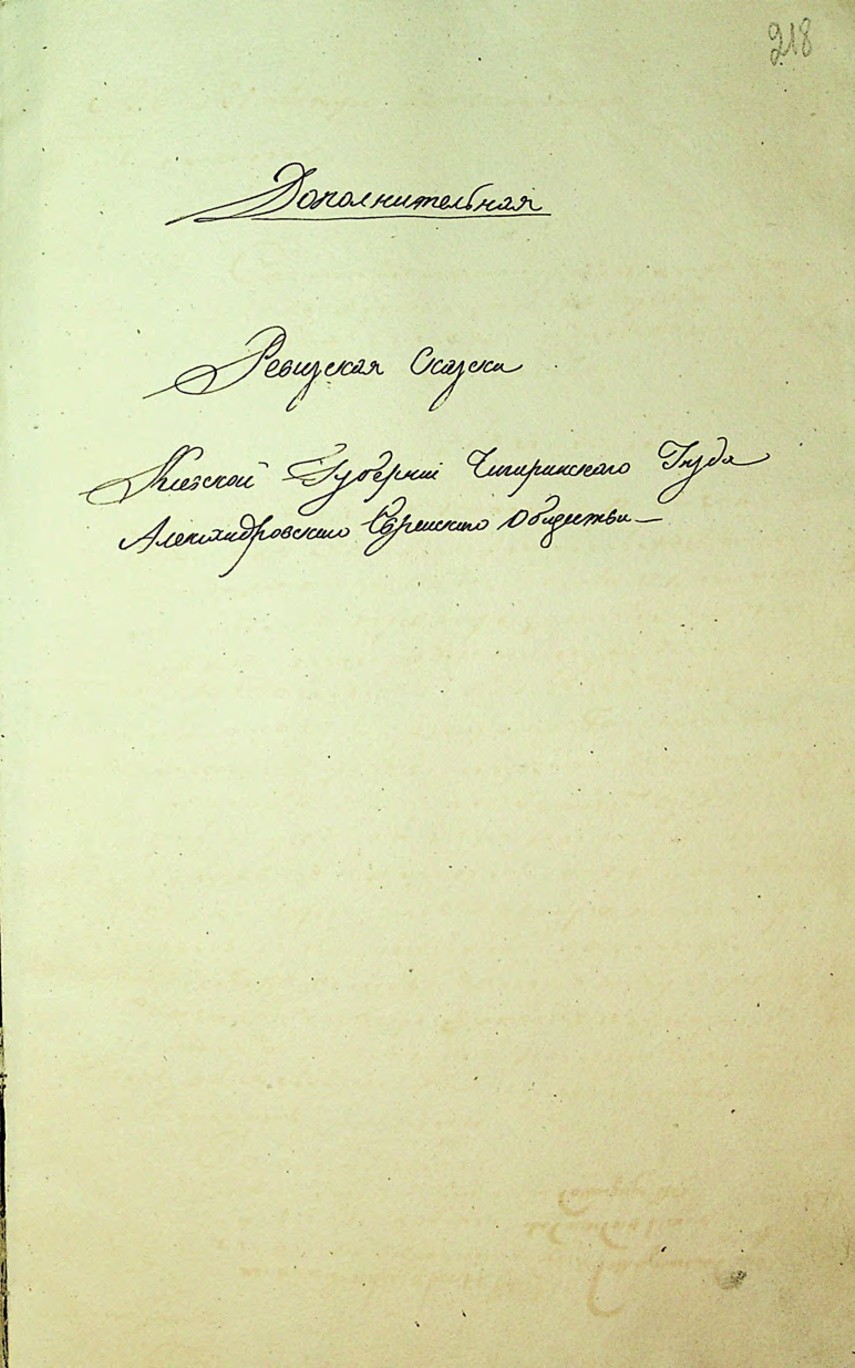 218
Дополнительная
Ревизская Сказка
Киевской Губернии Чигиринского Уезда
Александровского Еврейского Общества